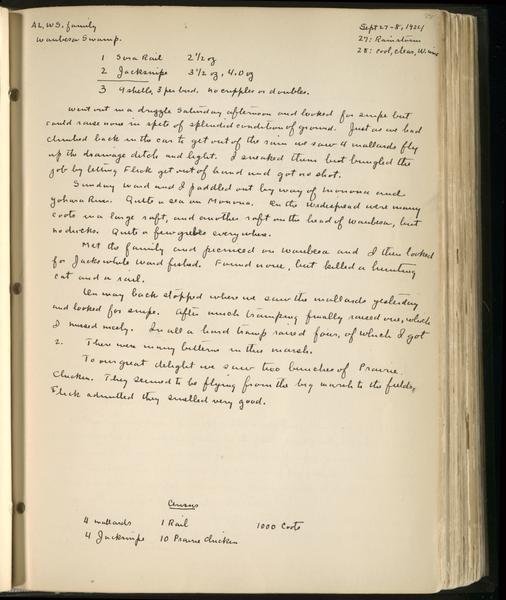 AL, WS, family
Waubesa Swamp.
Sept 27-8, 1924
27: Rainstorm
28: Cool, clear, W. wind
1 Sora Rail 2 1/2 oz
2 Jacksnipe 3 1/2 oz, 4.0 oz
3 9 shells, 3 per bird, no cripples or doubles.
Went out in a drizzle Saturday afternoon and looked for snipe but
could raise none in spite of splendid condition of ground. Just as we had
climbed back in the car to get out of the rain we saw 4 mallards fly
up the drainage ditch and light. I sneaked them but bungled the
job by letting Flick get out of hand and got no shot.
Sunday Ward and I paddled out by way of Monona and
Yahara River. Quite a sea on Monona. On the Widespread were many
coots in a large raft, and another raft on the head of Waubesa, but
no ducks. Quite a few grebes everywhere.
Met the family and picniced on Waubesa and I then looked
for Jacks while Ward fished. Found none, but killed a hunting
cat and a rail.
On way back stopped where we saw the mallards yesterday
and looked for snipe. After much tramping finally raised one, which
I missed nicely. In all a hard tramp raised four, of which I got
2. There were many bitterns in this marsh.
To our great delight we saw two bunches of Prairie
Chicken. They seemed to be flying from the big marsh to the fields.
Flick admitted they smelled very good.
Census
4 mallards 1 Rail 1000 Coots
4 Jacksnipe 10 Prairie Chicken